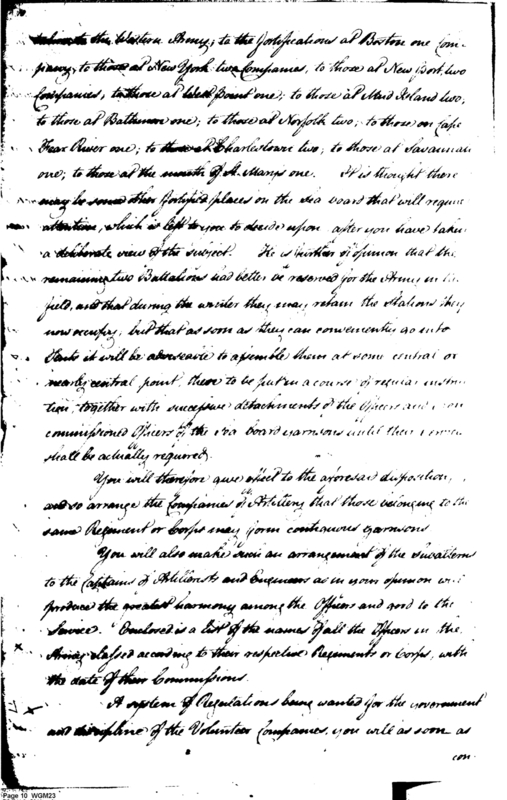 the Western Army; to the fortifications at Boston one Com-
pany; to those at New York two Companies, to those at New Port, two
Companies, to those at West Point one; to those at Mud Island two,
to those at Baltimore one; to those at Norfolk two; to those on Cape
Fear River one; to those at Charlestown two; to those at Savannah
one; to those at the mouth of St. Marys one. It is thought there
may be some other fortified places on the Sea board that will require
attention, which is left to you to decide upon after you have taken
a deliberate view of the subject. He is further of opinion that the
remaining two Battalions had better be reserved for the Army in the
field, and that during the winter they may retain the stations they
now occupy, but that as soon as they can conveniently go into
Tents it will be adviseable to assemble them at some central or
nearly central point, there to be put in a course of regular instruc
tion, together with successive detachments of the Officers and non
commissioned Officers of the sea board garrisons until their service
shall be actually required.
You will therefore give effect to the aforesaid disposition,
and so arrange the Companies of Artillery that those belonging to the
same Regiment or Corps may form contiguous garrisons
You will also make such an arrangement of the Subalterns
to the Captains of Artillerists and Engineers as in your opinion will
produce the greatest harmony among the Officers and good to the
Service. Enclosed is a list of the names of all the Officers in the
Army classed according to their respective Regiments or Corps, with
the date of their Commissions.
A system of Regulations being wanted for the government
and discipline of the Volunteer Companies, you will as soon as
con-
Page 10 WGM23